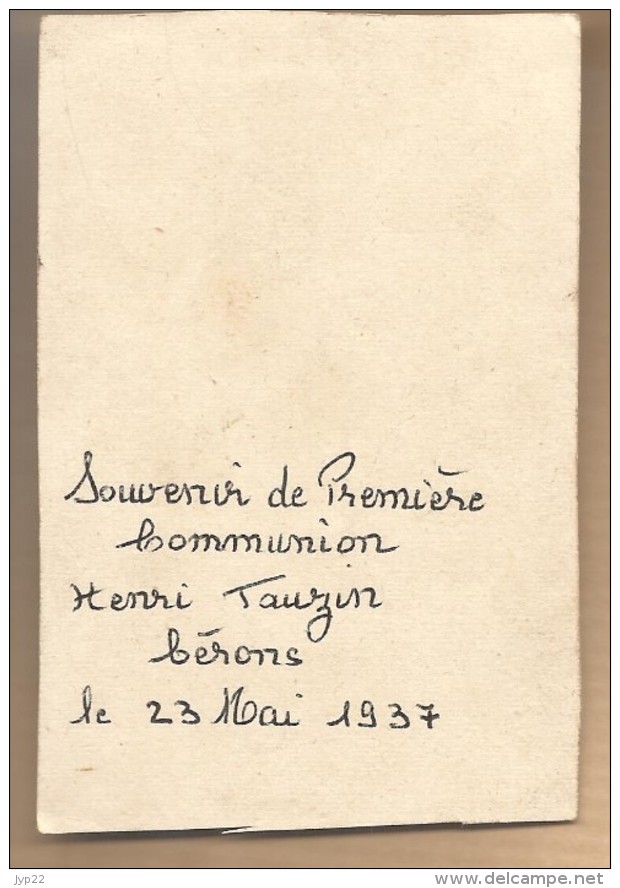 Souvenir de Première
Communion
Henri Tauzin
Cérons
le 23 Mai 1937
jyp22
www.delcampe.net